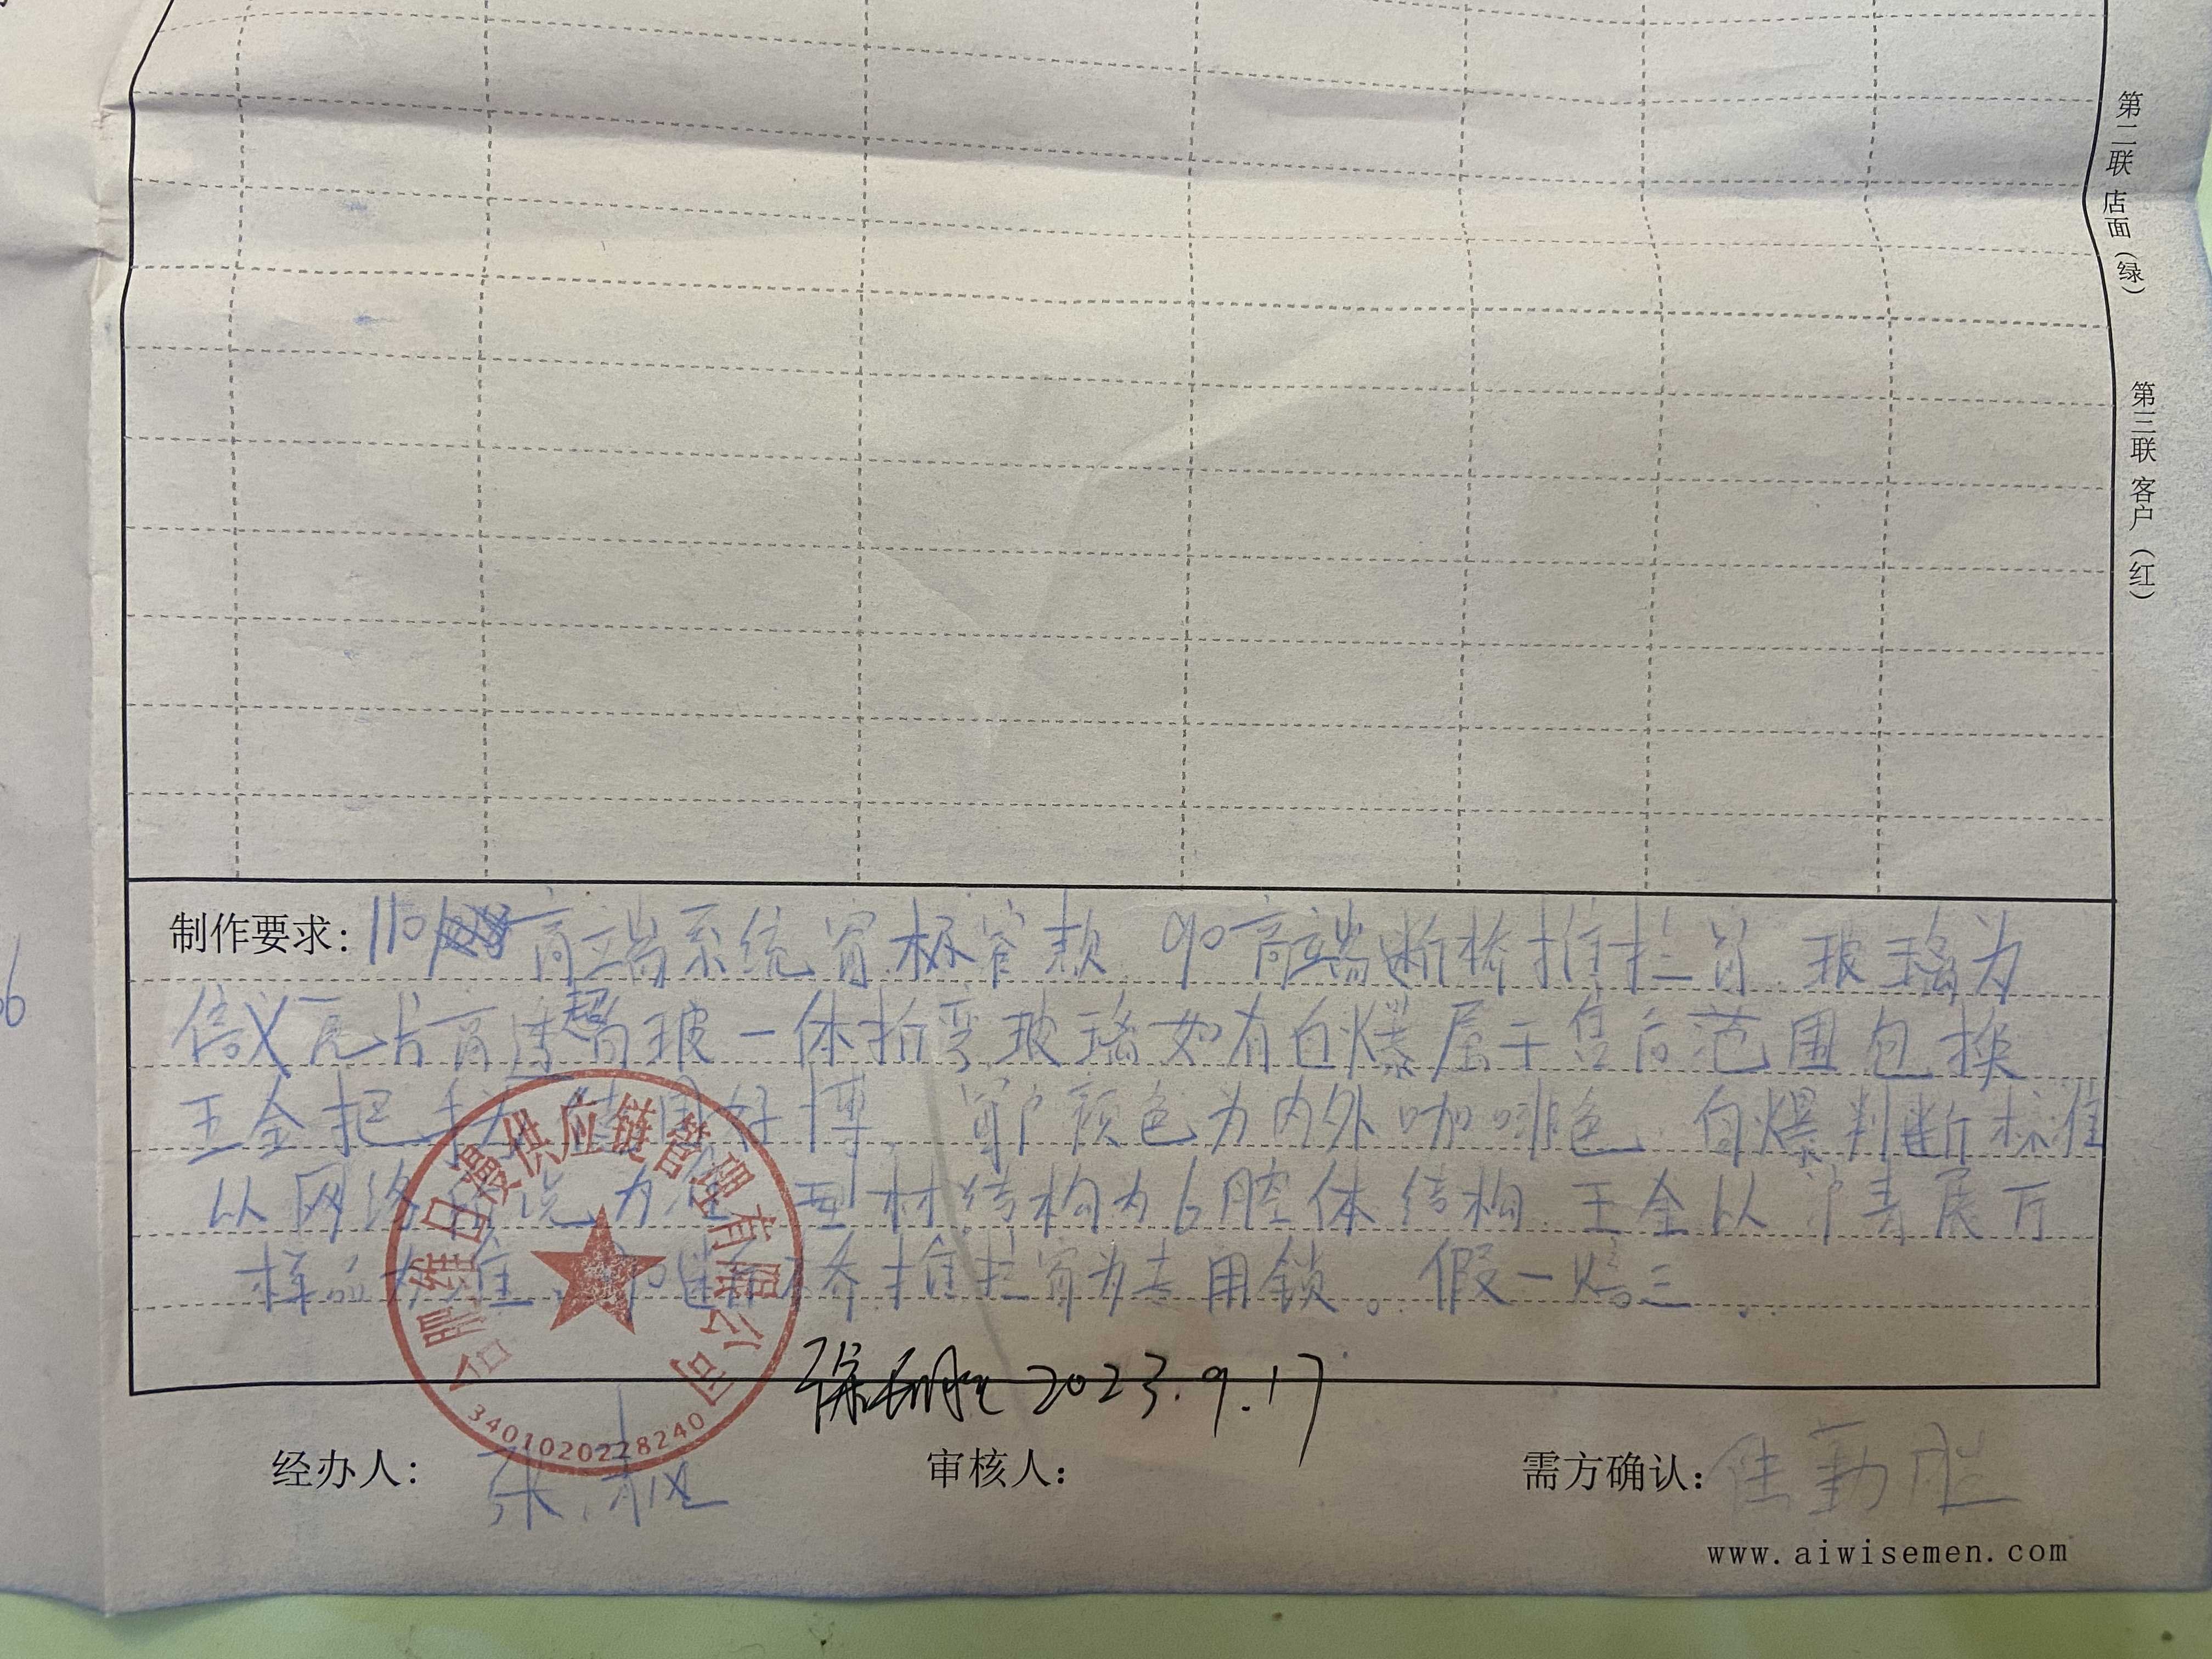 第二联 店面 (绿)
第三联 客户 (红)
制作要求: 110高端系统窗.极窄款. 90高端断桥推拉窗.玻璃为
信义原片高清超白玻一体折弯玻璃如有自爆属于售后范围包换
五金把手为德国好博. 窗户颜色为内外咖啡色.自爆判断标准
以网络所说为准.型材结构为6腔体结构.五金以沪青展厅
样品为准.桥推拉窗为专用锁。假一赔三.
合肥 日 供应链管理有限公司
3401020228240
2023.9.17
经办人: 张
审核人:
需方确认: 勤胜
www.aiwisemen.com